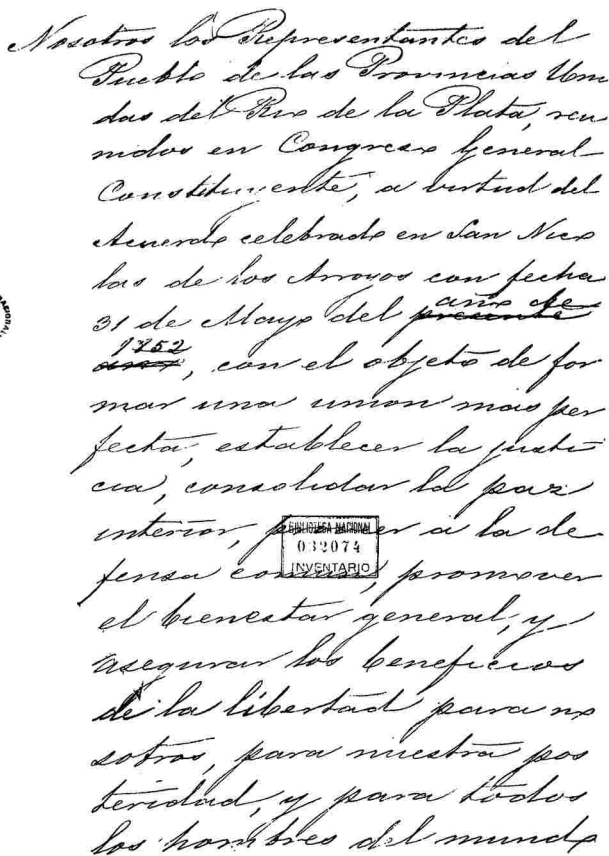 Nosotros los Representantes del
Pueblo de las Provincias Uni
das del Rio de la Plata, reu
nidos en Congreso General
Constituyente, a virtud del
Acuerdo celebrado en San Nico
las de los Arroyos con fecha
31 de Mayo del presente año de
año 1852, con el objeto de for
mar una union mas per
fecta, establecer la justi
cia, consolidar la paz
interior, er a la de
BIBLIOTECA NACIONAL
032074
INVENTARIO
fensa comun, promover
el bienestar general, y
asegurar los beneficios
de la libertad para no
sotros, para nuestra pos
teridad, y para todos
los hombres del mundo